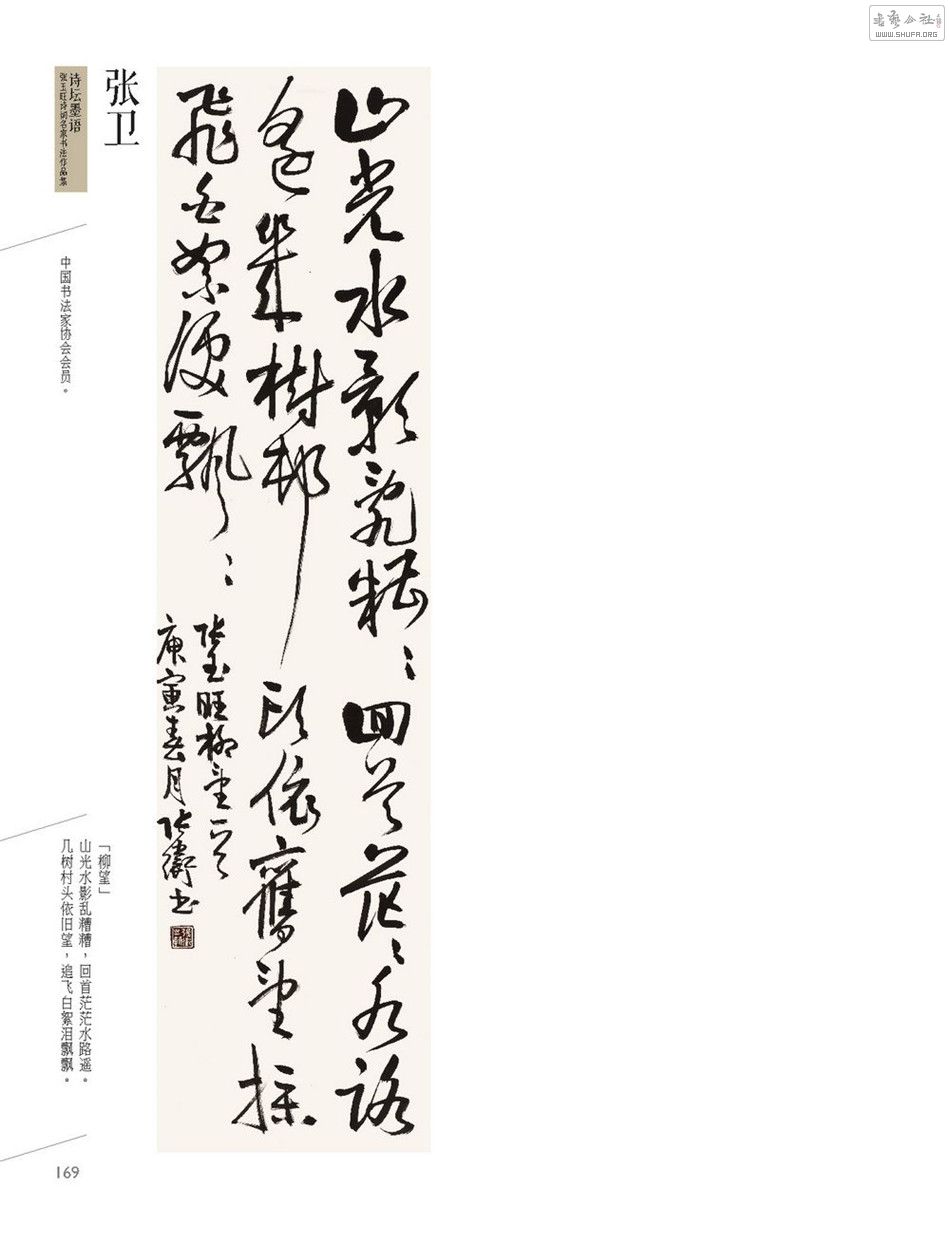 书艺公社
WWW.SHUFA.ORG
张卫
诗坛墨语
张玉旺诗词名家书法作品集
中国书法家协会会员。
山光水影亂糟：回首茫：水路
遥幾樹邨頭依舊望
飛白絮淚飄：
張玉旺柳望一首
庚寅春月張衛書
「柳望」
山光水影乱糟糟，回首茫茫水路遥。
几树村头依旧望，追飞白絮泪飘飘。
169